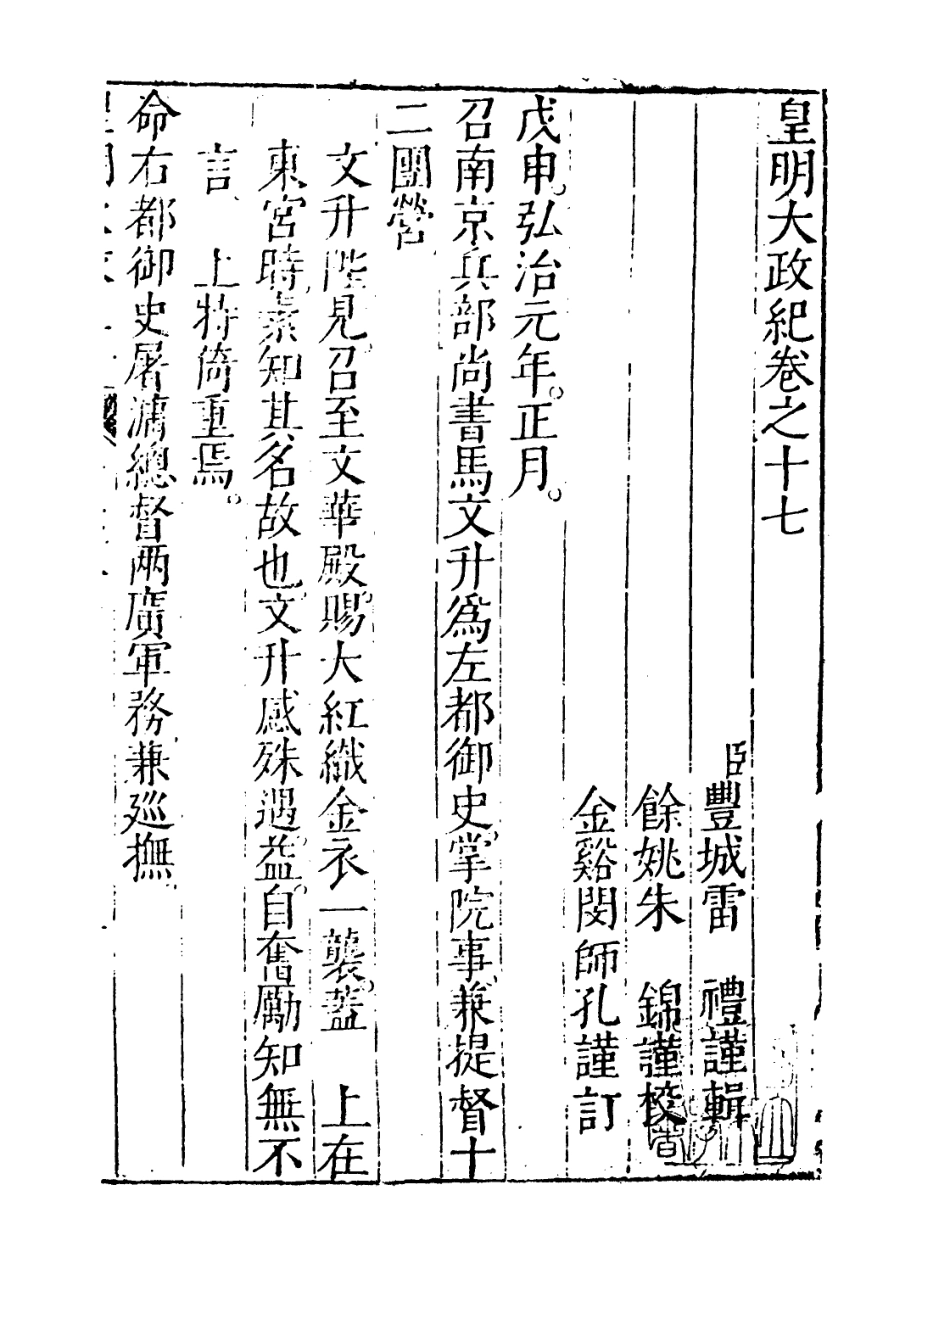 皇明大政紀卷之十七
臣豐城雷　禮謹輯
餘姚朱　錦謹校
金谿閔師孔謹訂
戊申。弘治元年。正月。
召南京兵部尚書馬文升爲左都御史掌院事兼提督十
二團營
文升陛見召至文華殿賜大紅織金衣一襲蓋　上在
東宮時素知其名故也文升感殊遇益自奮勵知無不
言　上特倚重焉。
命右都御史屠滽總督兩廣軍務兼廵撫